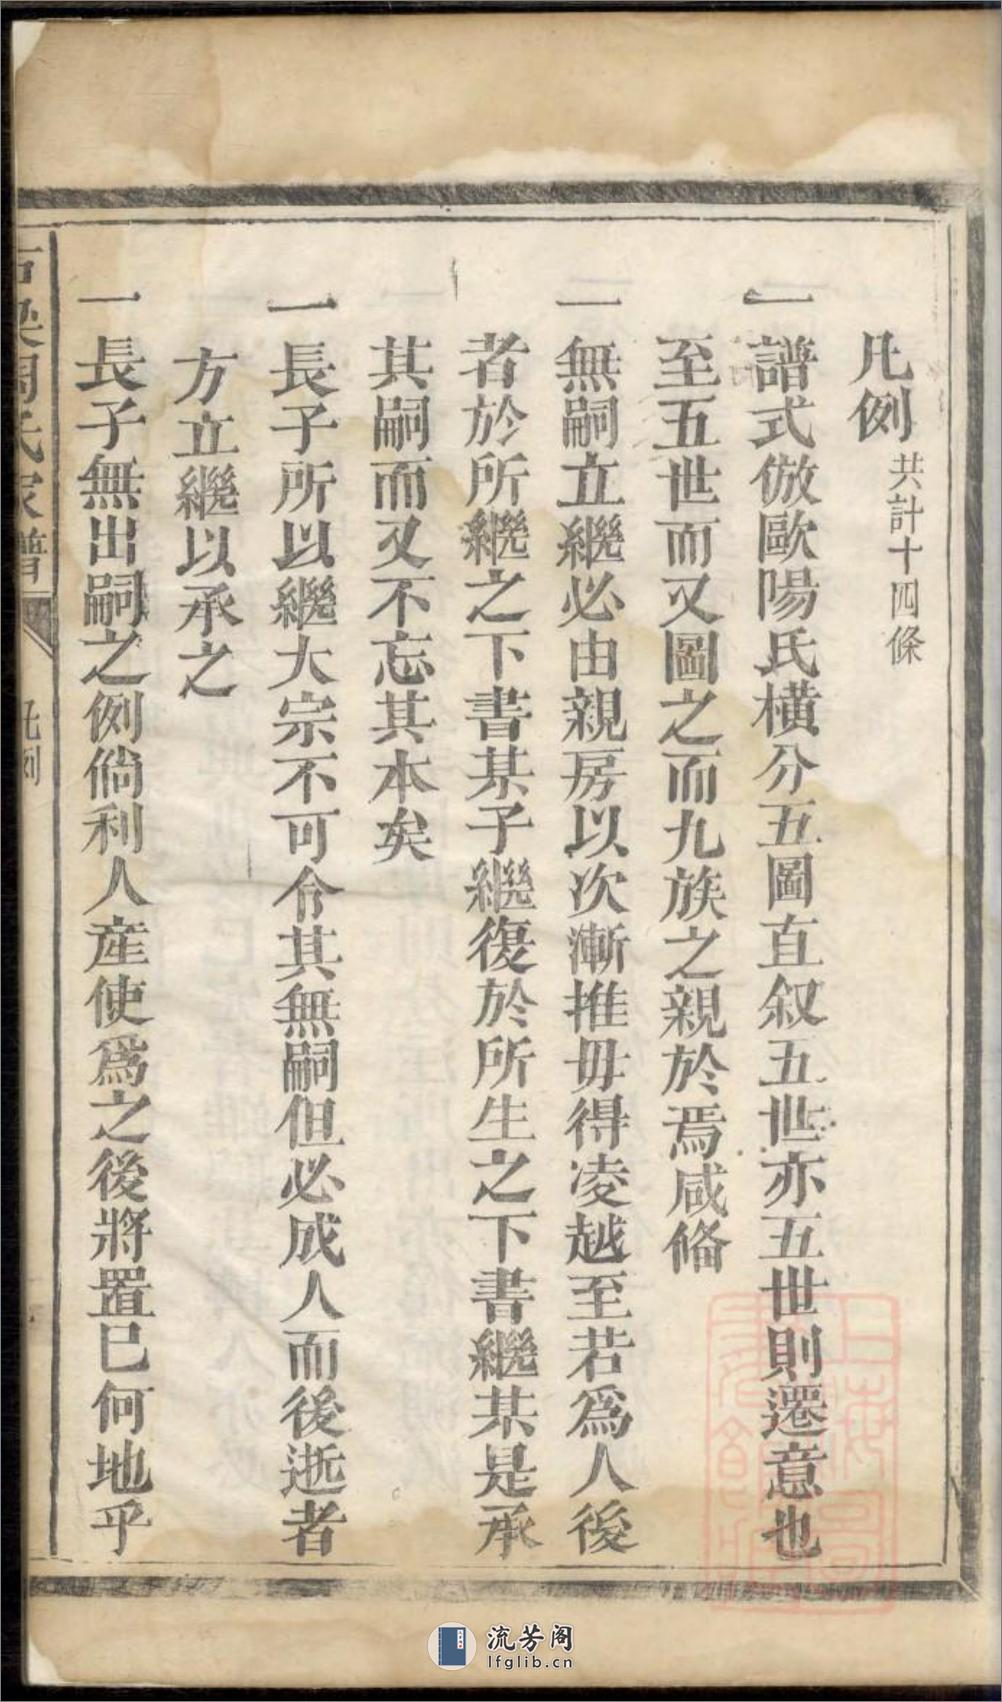 凡例 共計十四條
一譜式倣歐陽氏橫分五圖直叙五世亦五世則遷意也
至五世而又圖之而九族之親於焉咸俻
一無嗣立繼必由親房以次漸推毋得凌越至若爲人後
者於所繼之下書某子繼復於所生之下書繼某是承
其嗣而又不忘其本矣
一長子所以繼大宗不可令其無嗣但必成人而後逝者
方立繼以承之
一長子無出嗣之例倘利人産使爲之後將置已何地乎
周氏家譜 凡例
流芳阁
lfglib.cn